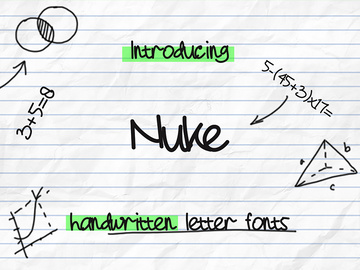 Introducing
5-(45+3)x17=
3+5=8
Nuke
a
b
c
handwritten letter fonts